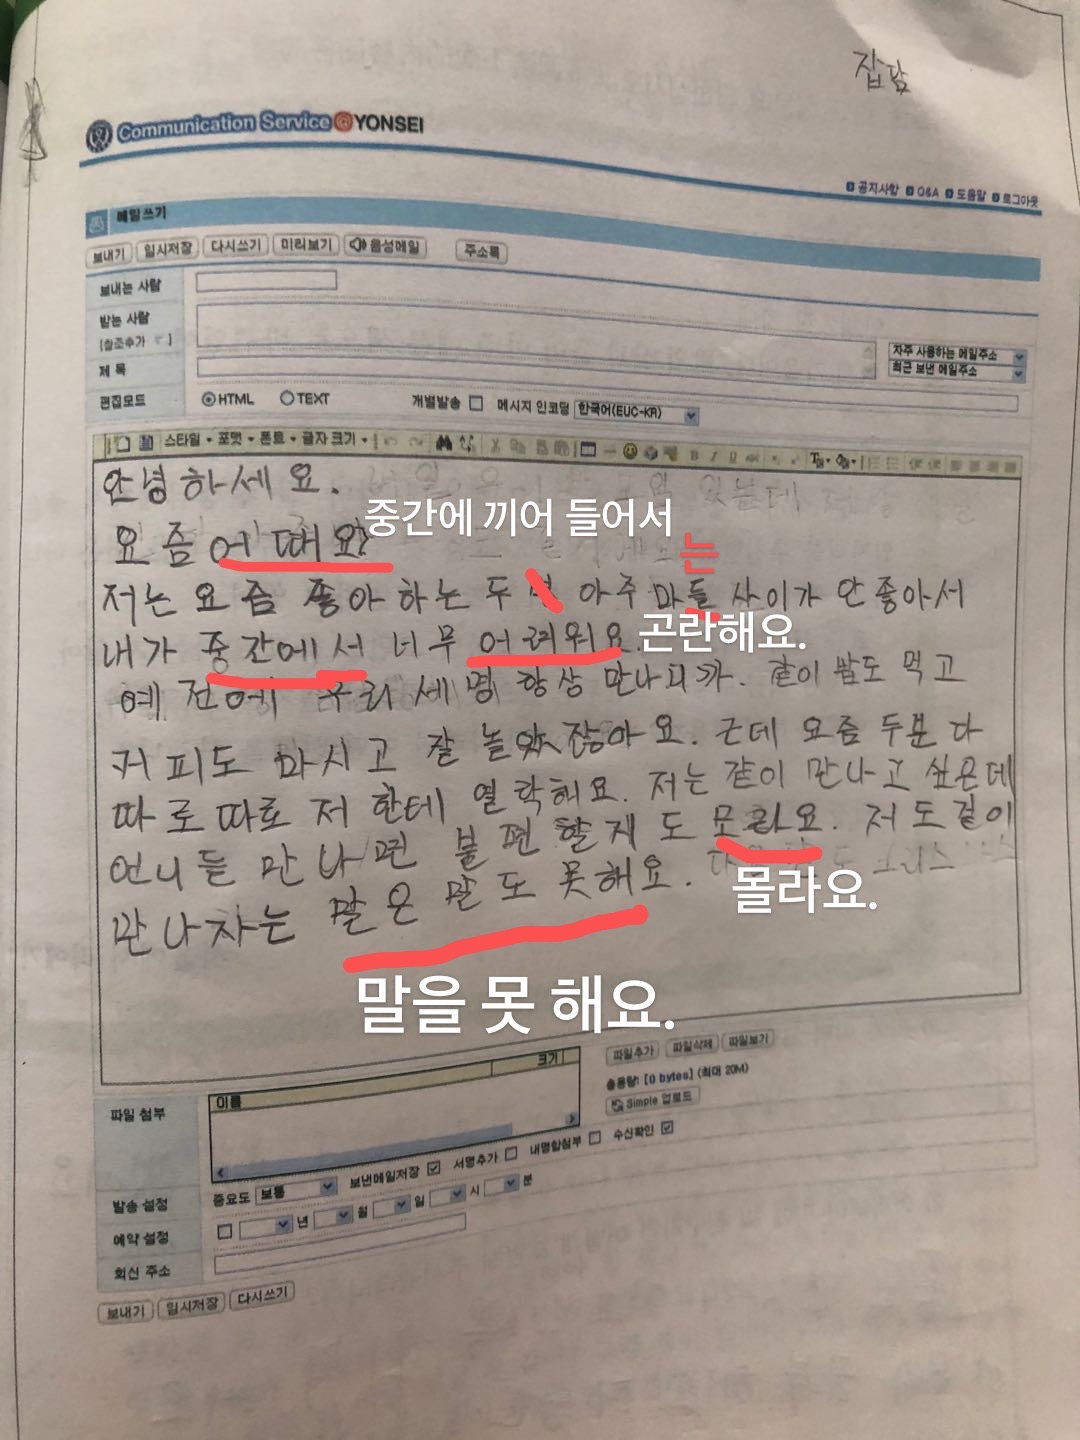 잡담
Communication Service@YONSEI
공지사항 Q&A 도움말 로그아웃
메일쓰기
보내기 임시저장 다시쓰기 미리보기 음성메일 주소록
보내는 사람
받는 사람
[참조추가]
자주 사용하는 메일주소
제 목
최근 보낸 메일주소
편집모드 HTML TEXT 개별발송 메시지 인코딩 한국어(EUC-KR)
스타일 포맷 폰트 글자 크기
안녕하세요.
중간에 끼어 들어서
요즘 어때요?
는
저는 요즘 좋아하는 두 아주마들 사이가 안좋아서
내가 중간에서 너무 어려워요.
곤란해요.
예전에 우리 세명 항상 만나니까. 같이 밥도 먹고
커피도 마시고 잘 놀았잖아요. 근데 요즘 두분 다
따로따로 저 한테 열락해요. 저는 같이 만나고 싶은데
언니들 만나면 불편할게도 모라요. 저도 같이
몰라요.
만나자는 말은 말도 못해요.
말을 못 해요.
크기
파일추가 파일삭제 파일보기
이름
총용량: [0 bytes] (최대 20M)
Simple 업로드
파일 첨부
발송 설정 중요도 보통 보낸메일저장 서명추가 내명함첨부 수신확인
예약 설정 년 월 일 시 분
회신 주소
보내기 임시저장 다시쓰기